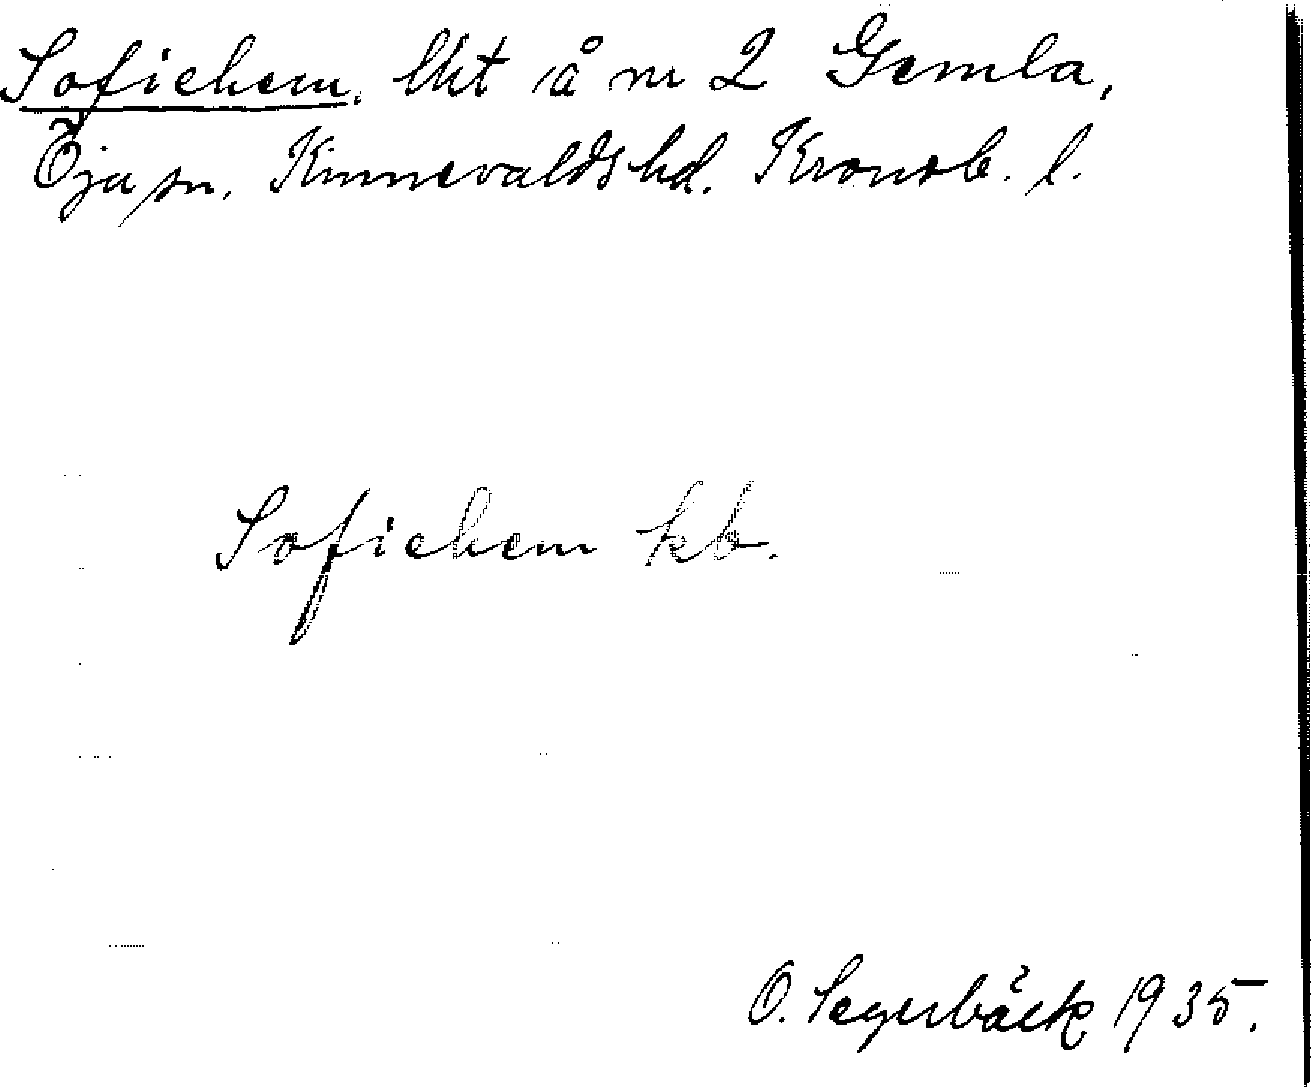 Sofiehem. lht å nr 2 Gemla,
Öja sn. Kinnevalds hd. Kronob. l.
Sofiehem kb.
O. Segerbäck 1935.